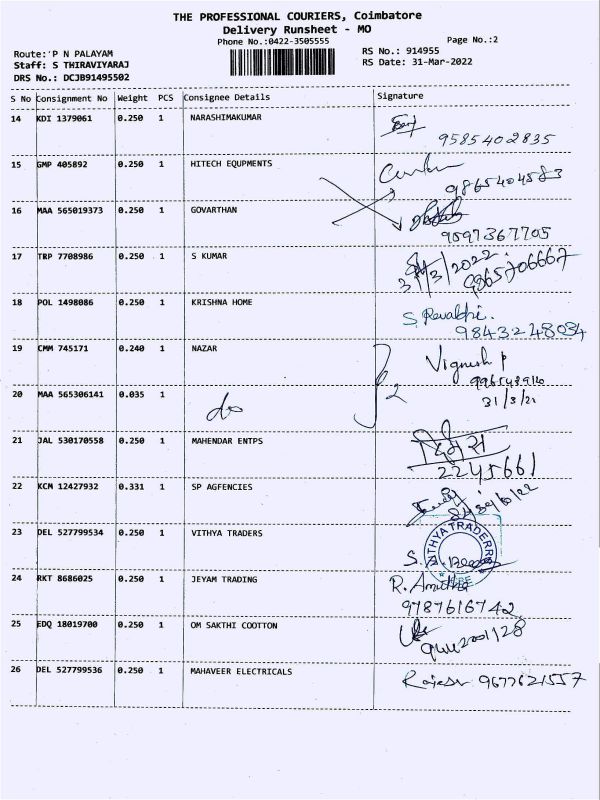 THE PROFESSIONAL COURIERS, Coimbatore
Delivery Runsheet - MO
Phone No.:0422-3505555
Page No.:2
Route: P N PALAYAM
RS No.: 914955
Staff: S THIRAVIYARAJ
RS Date: 31-Mar-2022
DRS No.: DCJB91495502
S No Consignment No Weight PCS Consignee Details Signature
14 KDI 1379061 0.250 1 NARASHIMAKUMAR
9585402835
15 GMP 405892 0.250 1 HITECH EQUPMENTS
9865404583
16 MAA 565019373 0.250 1 GOVARTHAN
9597367705
17 TRP 7708986 0.250 1 S KUMAR
31/3/2022
9865706667
18 POL 1498086 0.250 1 KRISHNA HOME
S. Revathi.
9843248034
19 CMM 745171 0.240 1 NAZAR
Vignesh P
20 MAA 565306141 0.035 1
do
2
31/3/22
21 JAL 530170558 0.250 1 MAHENDAR ENTPS
2245661
22 KCM 12427932 0.331 1 SP AGFENCIES
23 DEL 527799534 0.250 1 VITHYA TRADERS
VITHYA TRADERRS
24 RKT 8686025 0.250 1 JEYAM TRADING
R. Amutha
9787616742
25 EDQ 18019700 0.250 1 OM SAKTHI COOTTON
26 DEL 527799536 0.250 1 MAHAVEER ELECTRICALS
Rajesh 9677621557